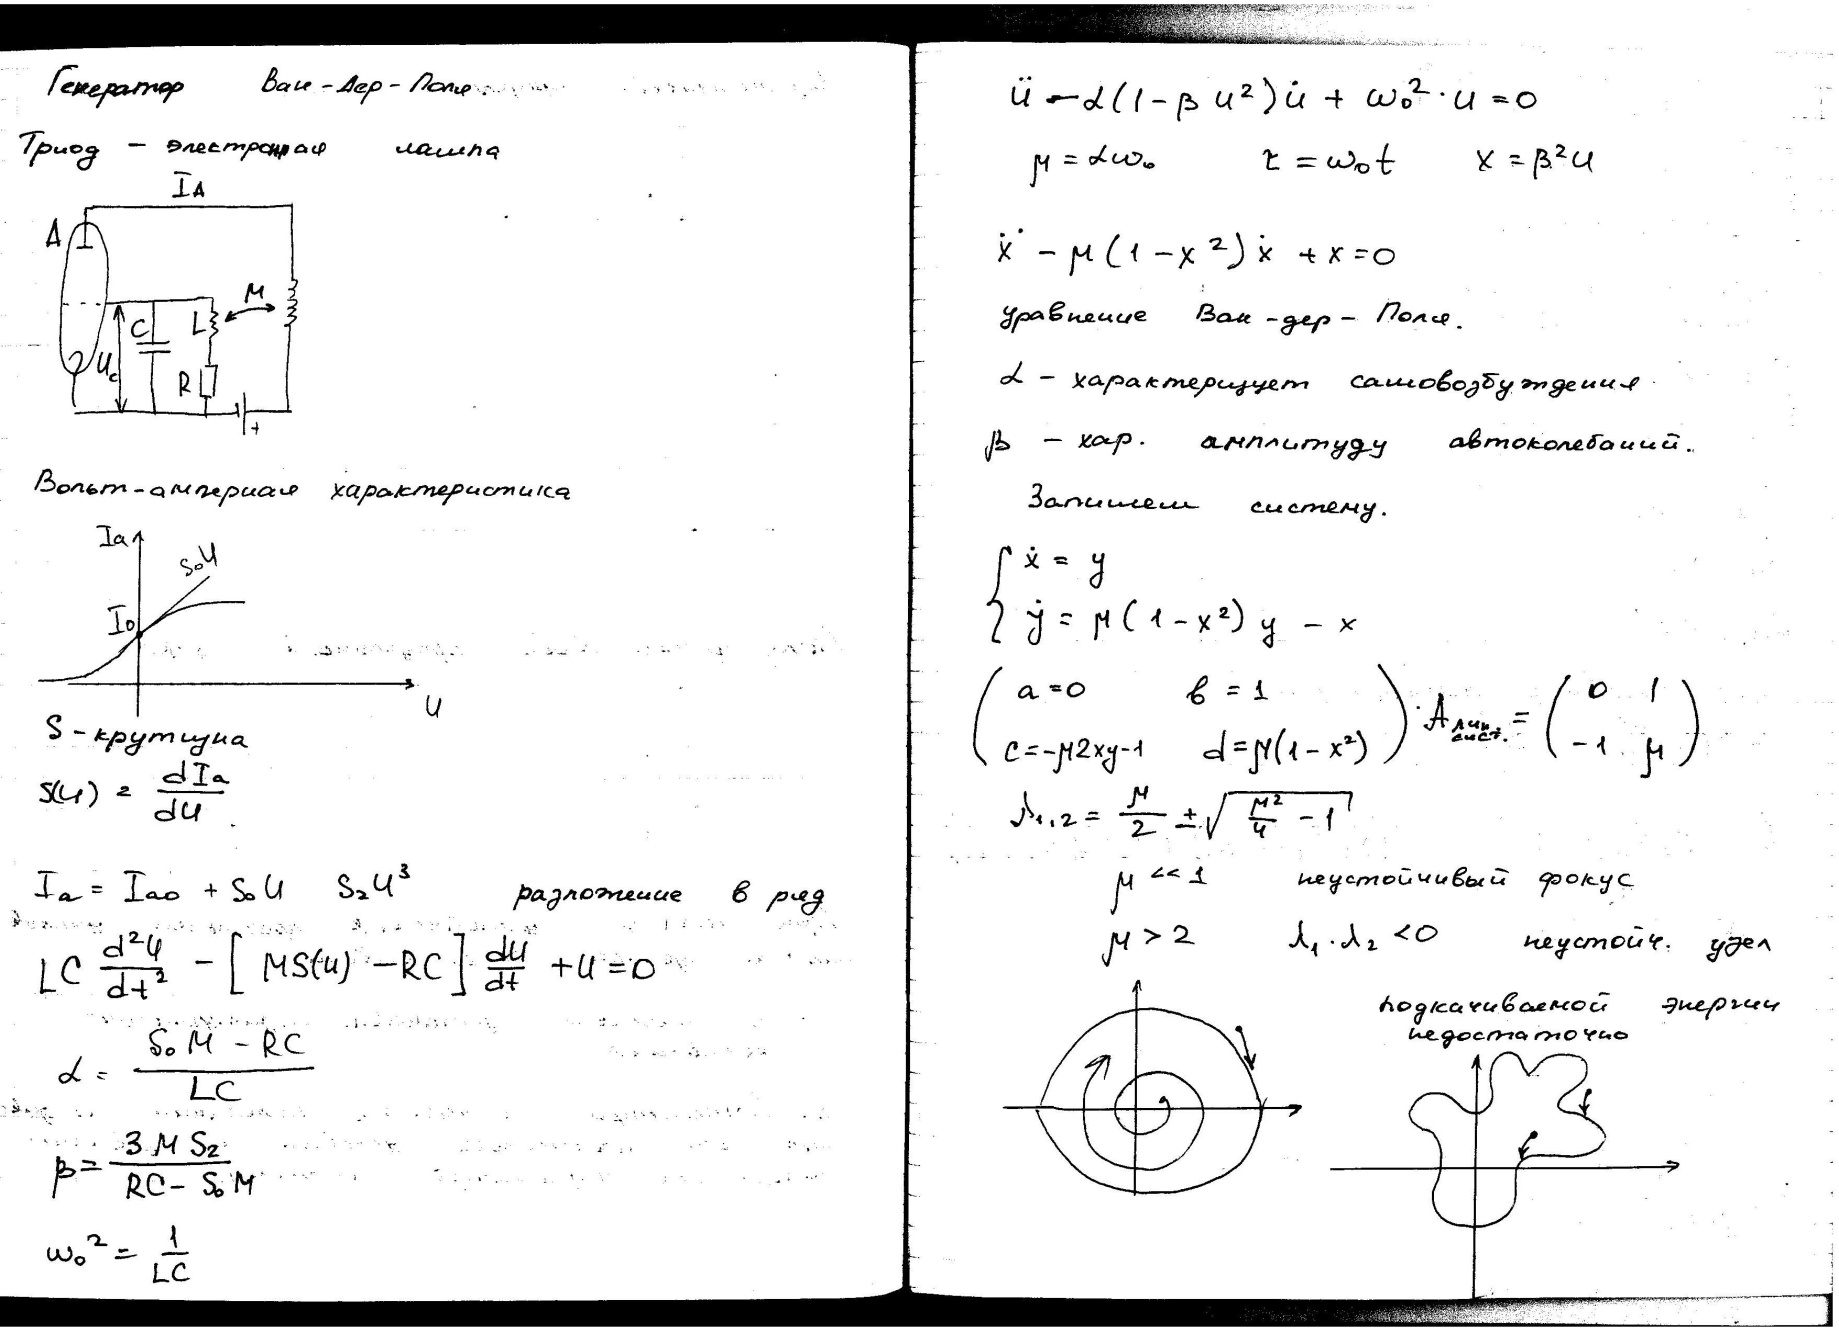 Генератор Ван-Дер-Поля.
Триод – электронная лампа
I_A
A
M
C
L
U_c
R
+
Вольт-амперная характеристика
Ia
S₀U
I₀
U
S – крутизна
S(U) = dIa/dU
Ia = Iao + S₀U S₂U³ разложение в ряд
LC d²U/dt² – [MS(U) – RC] dU/dt + U = 0
α = (S₀M – RC)/LC
β = 3MS₂/(RC – S₀M)
ω₀² = 1/LC
ü – α(1 – βu²)u̇ + ω₀²·u = 0
μ = αω₀ τ = ω₀t x = β²u
ẍ – μ(1 – x²)ẋ + x = 0
уравнение Ван-дер-Поля.
α – характеризует самовозбуждения
β – хар. амплитуду автоколебаний.
Запишем систему.
{ẋ = y
ẏ = μ(1 – x²)y – x
(a = 0 в = 1
c = –μ2xy–1 d = μ(1 – x²)) A лин. сист. = (0 1
–1 μ)
λ₁,₂ = μ/2 ± √(μ²/4 – 1)
μ << 1 неустойчивый фокус
μ > 2 λ₁·λ₂ < 0 неустойч. узел
подкачиваемой энергии
недостаточно